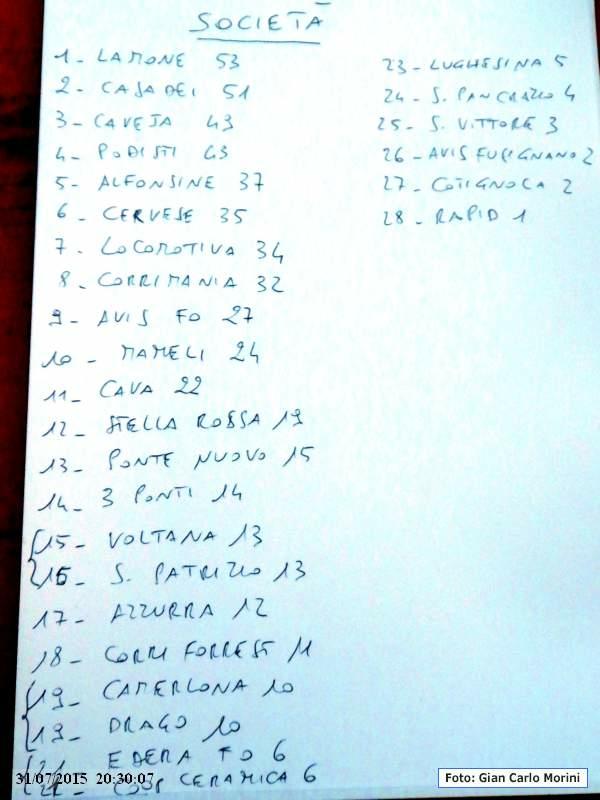 SOCIETÀ
1- LAMONE 53
2- CASADEI 51
3- CAVEJA 43
4- PODISTI 43
5- ALFONSINE 37
6- CERVESE 35
7- LOCOMOTIVA 34
8- CORRIMANIA 32
9- AVIS FO 27
10- MAMELI 24
11- CAVA 22
12- STELLA ROSSA 19
13- PONTE NUOVO 15
14- 3 PONTI 14
15- VOLTANA 13
16- S. PATRIZIO 13
17- AZZURRA 12
18- CORRI FORREST 11
19- CAMERLONA 10
19- DRAGO 10
21- EDERA FO 6
21- CERAMICA 6
23- LUGHESINA 5
24- S. PANCRAZIO 4
25- S. VITTORE 3
26- AVIS FUSIGNANO 2
27- COTIGNOLA 2
28- RAPID 1
31/07/2015 20:30:07
Foto: Gian Carlo Morini